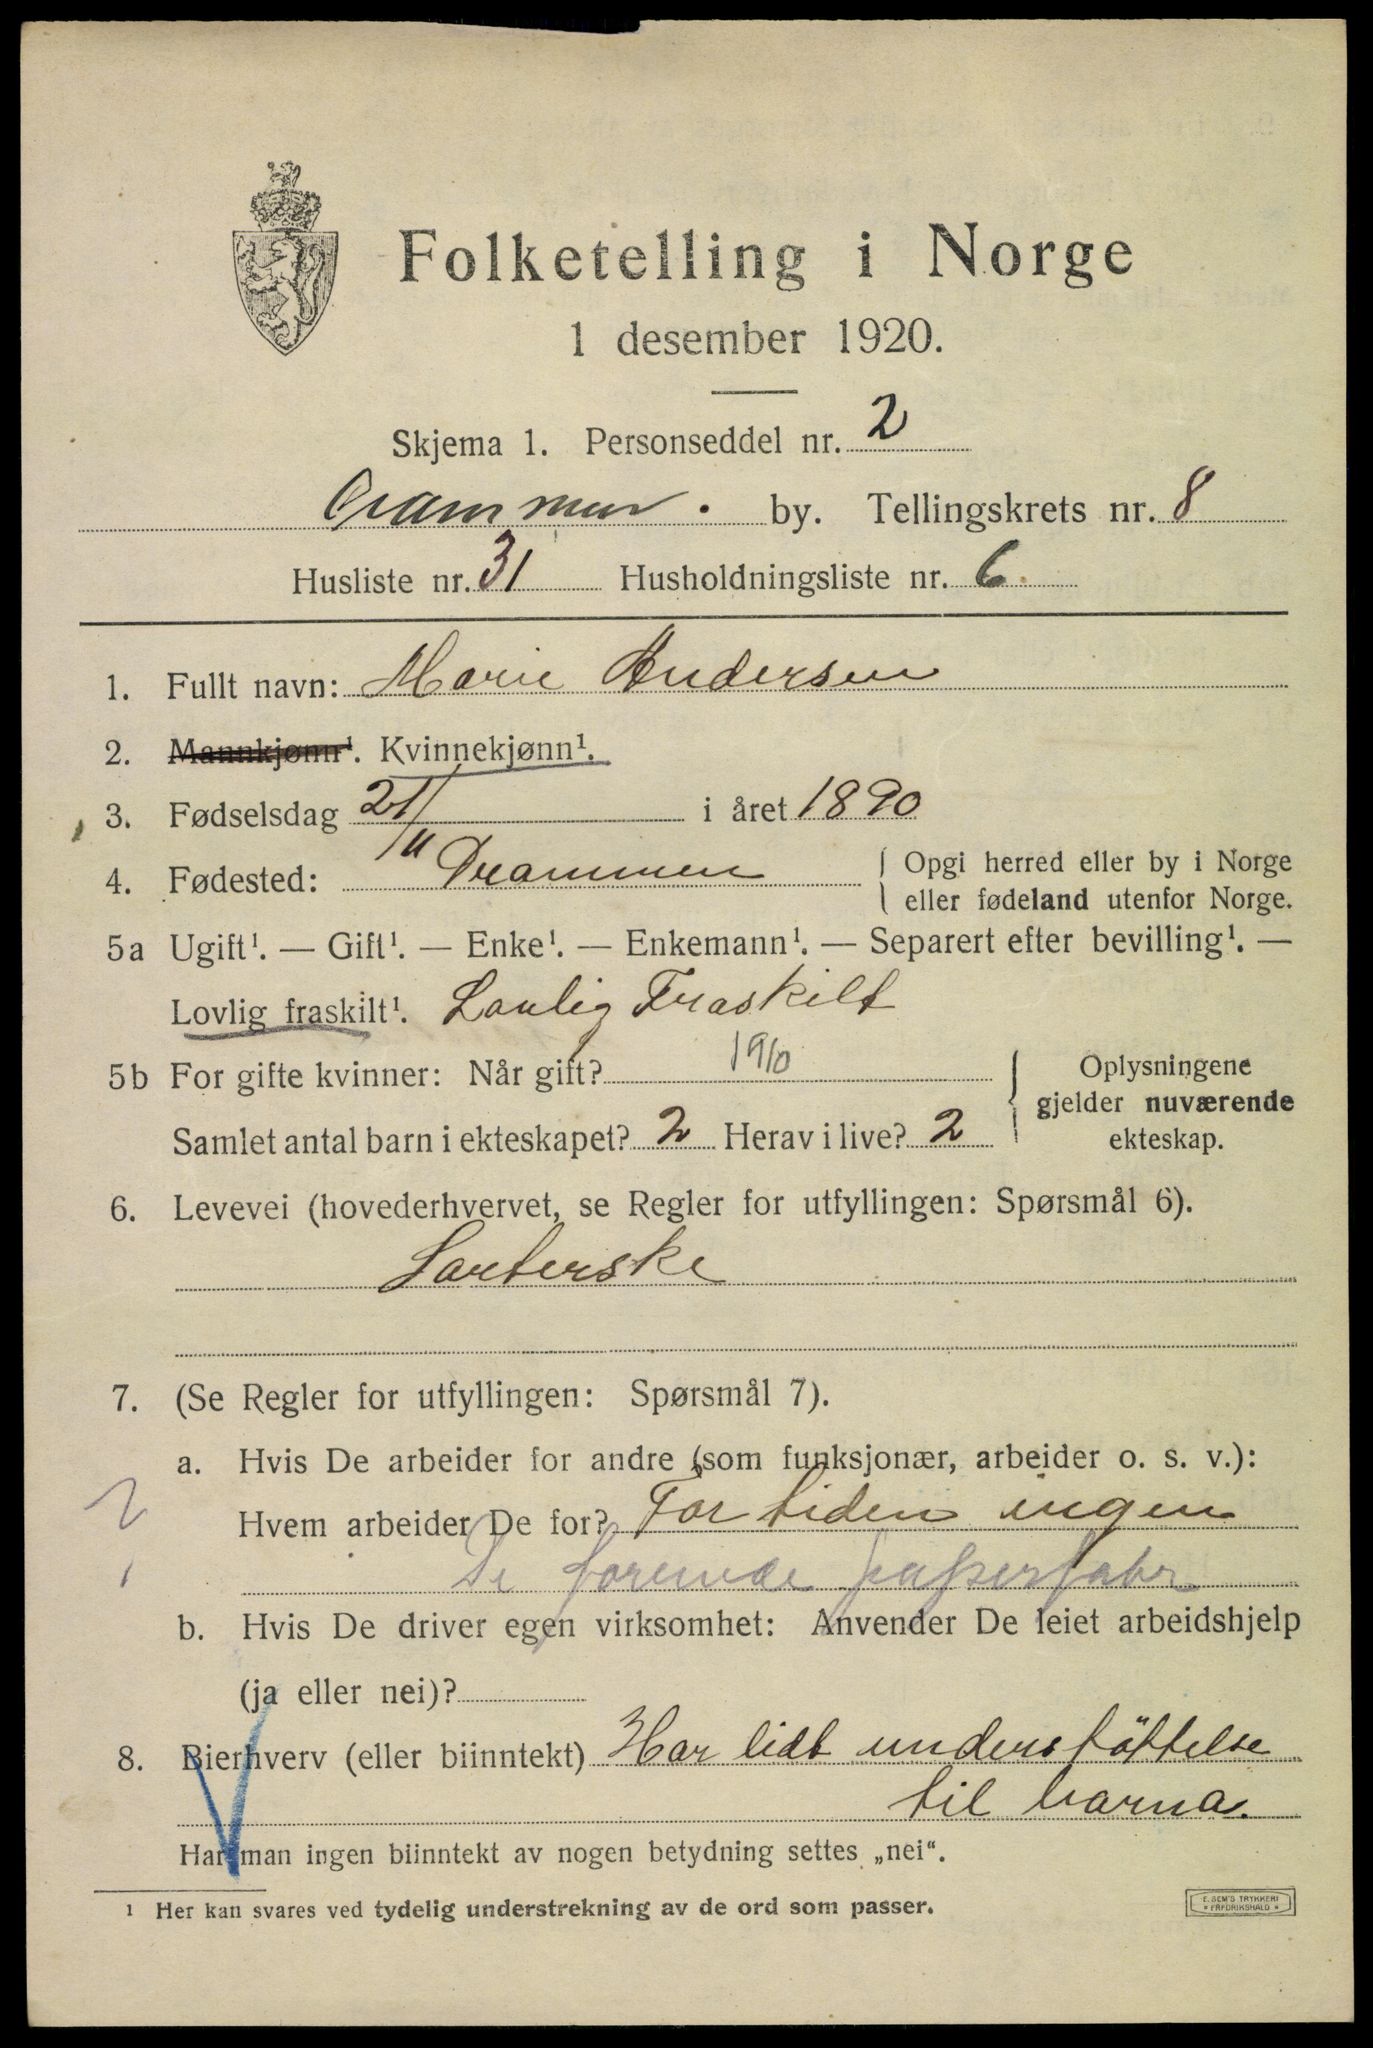 Folketelling i Norge
1 desember 1920.
Skjema 1. Personseddel nr. 2
Drammen. by. Tellingskrets nr. 8
Husliste nr. 31 Husholdningsliste nr. 6.
1. Fullt navn: Marie Andersen
2. Mannkjønn¹. Kvinnekjønn¹.
3. Fødselsdag 21/11 i året 1890
4. Fødested: Drammen { Opgi herred eller by i Norge
eller fødeland utenfor Norge.
5a Ugift¹. — Gift¹. — Enke¹. — Enkemann¹. — Separert efter bevilling¹. —
Lovlig fraskilt¹. Lovlig Fraskilt
5b For gifte kvinner: Når gift? 1910
Samlet antal barn i ekteskapet? 2 Herav i live? 2
Oplysningene
gjelder nuværende
ekteskap.
6. Levevei (hovederhvervet, se Regler for utfyllingen: Spørsmål 6).
Sorterske
7. (Se Regler for utfyllingen: Spørsmål 7).
a. Hvis De arbeider for andre (som funksjonær, arbeider o. s. v.):
Hvem arbeider De for? For tiden ingen
De forenede papirfabr
b. Hvis De driver egen virksomhet: Anvender De leiet arbeidshjelp
(ja eller nei)?
8. Bierhverv (eller biinntekt) Har lidt understöttelse
til barna.
Har man ingen biinntekt av nogen betydning settes „nei“.
¹ Her kan svares ved tydelig understrekning av de ord som passer.
E. SEM'S TRYKKERI
* FREDRIKSHALD *